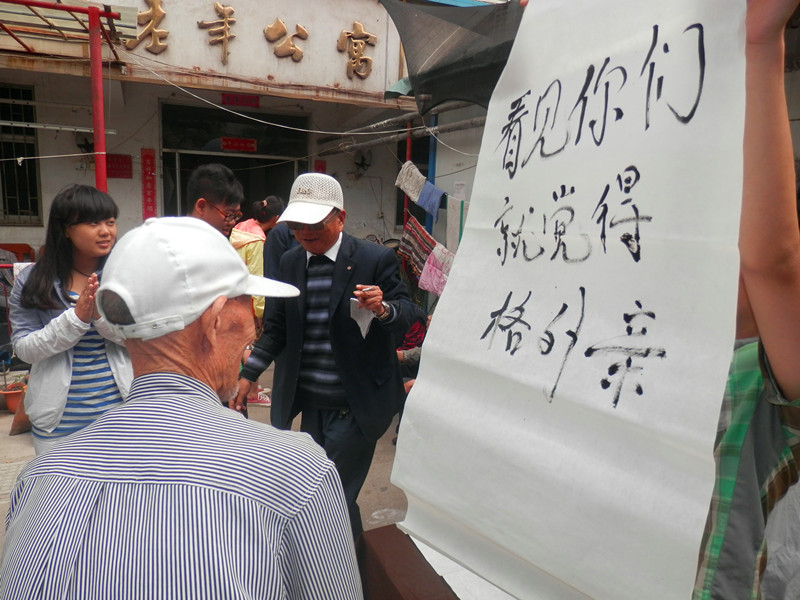 老年公寓
看见你们
就觉得
格外亲